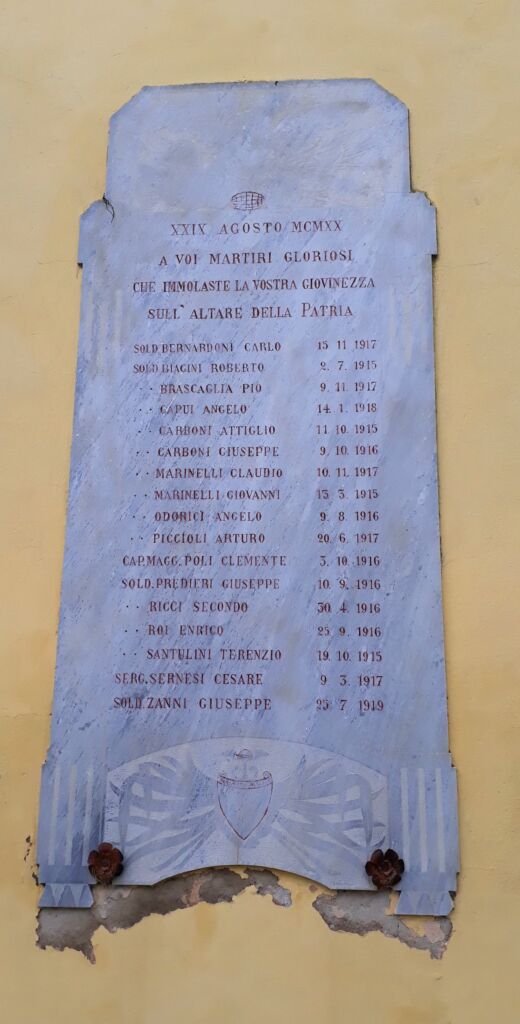 XXIX AGOSTO MCMXX
A VOI MARTIRI GLORIOSI
CHE IMMOLASTE LA VOSTRA GIOVINEZZA
SULL'ALTARE DELLA PATRIA
SOLD. BERNARDONI CARLO 15 11 1917
SOLD. BIAGINI ROBERTO 2. 7. 1915
" " BRASCAGLIA PIO 9. 11. 1917
" " CAPUI ANGELO 14. 1. 1918
" " CARBONI ATTIGLIO 11 10 1915
" " CARBONI GIUSEPPE 9. 10. 1916
" " MARINELLI CLAUDIO 10. 11. 1917
" " MARINELLI GIOVANNI 13 3. 1915
" " ODORICI ANGELO 9. 8. 1916
" " PICCIOLI ARTURO 20. 6. 1917
CAP.MAGG. POLI CLEMENTE 3. 10. 1916
SOLD. PREDIERI GIUSEPPE 10. 9. 1916
" " RICCI SECONDO 30. 4. 1916
" " ROI ENRICO 25. 9. 1916
" " SANTULINI TERENZIO 19. 10. 1915
SERG. SERNESI CESARE 9 3. 1917
SOLD. ZANNI GIUSEPPE 25 7. 1919